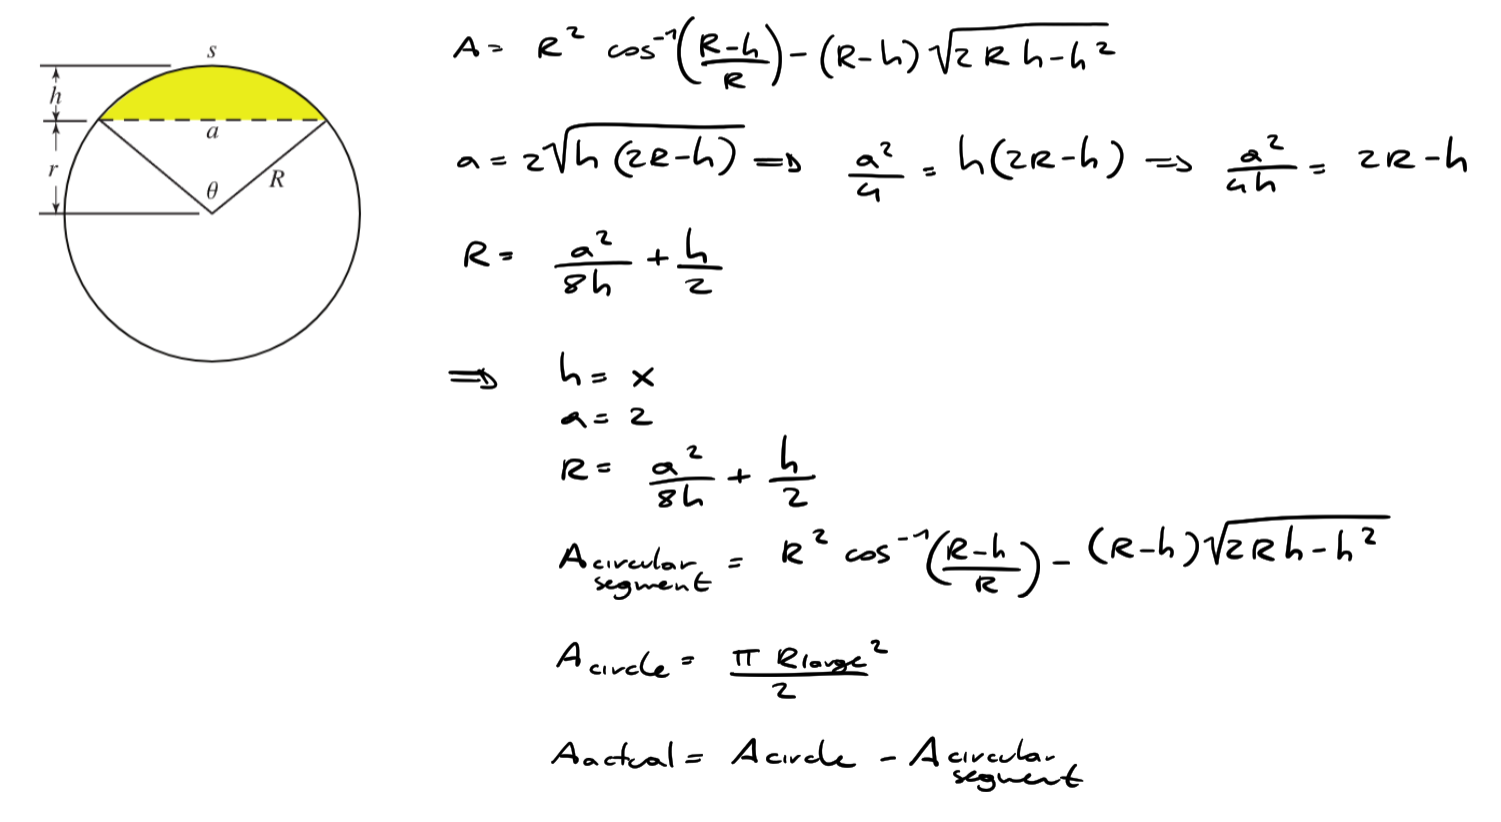 s
h
a
r
θ
R
A = R² cos⁻¹((R-h)/R) - (R-h)√(2Rh-h²)
a = 2√(h(2R-h)) ⇒ a²/4 = h(2R-h) ⇒ a²/4h = 2R-h
R = a²/8h + h/2
⇒ h = x
a = 2
R = a²/8h + h/2
A circular segment = R² cos⁻¹((R-h)/R) - (R-h)√(2Rh-h²)
A circle = π R large²/2
A actual = A circle - A circular segment